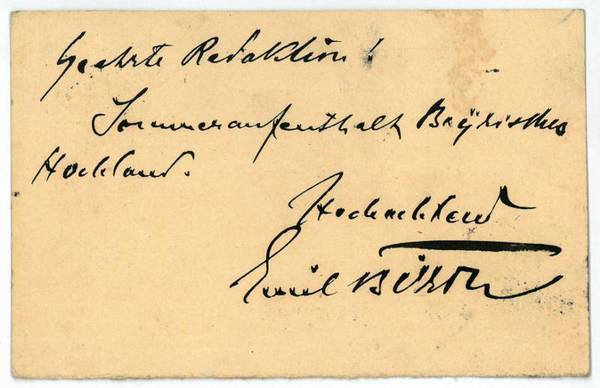 Geehrte Redaktion!
Sommeraufenthalt Bayrisches
Hochland.
Hochachtend
Emil